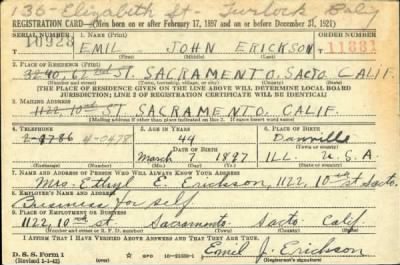 136 - Elizabeth St Turlock Calif
REGISTRATION CARD—(Men born on or after February 17, 1897 and on or before December 31, 1921)
SERIAL NUMBER 1. NAME (Print) ORDER NUMBER
10928 EMIL JOHN ERICKSON 11881
(First) (Middle) (Last)
2. PLACE OF RESIDENCE (Print)
3240, 62nd ST. SACRAMENTO, SACTO CALIF.
(Number and street) (Town, township, village, or city) (County) (State)
[THE PLACE OF RESIDENCE GIVEN ON THE LINE ABOVE WILL DETERMINE LOCAL BOARD
JURISDICTION; LINE 2 OF REGISTRATION CERTIFICATE WILL BE IDENTICAL]
3. MAILING ADDRESS
1122, 10th ST SACRAMENTO, CALIF.
(Mailing address if other than place indicated on line 2. If same insert word same)
4. TELEPHONE 5. AGE IN YEARS 6. PLACE OF BIRTH
2-8786 4-0478 44 Danville
DATE OF BIRTH (Town or county)
March 7 1897 ILL. U.S.A.
(Mo.) (Day) (Yr.) (State or country)
7. NAME AND ADDRESS OF PERSON WHO WILL ALWAYS KNOW YOUR ADDRESS
Mrs. Ethyl E. Erickson, 1122, 10th St Sacto.
8. EMPLOYER'S NAME AND ADDRESS
Business for self
9. PLACE OF EMPLOYMENT OR BUSINESS
1122, 10th St Sacramento Sacto Calif.
(Number and street or R. F. D. number) (Town) (County) (State)
I AFFIRM THAT I HAVE VERIFIED ABOVE ANSWERS AND THAT THEY ARE TRUE.
D. S. S. Form 1 Emil J. Erickson
(Revised 1-1-42) GPO (Registrant's signature)